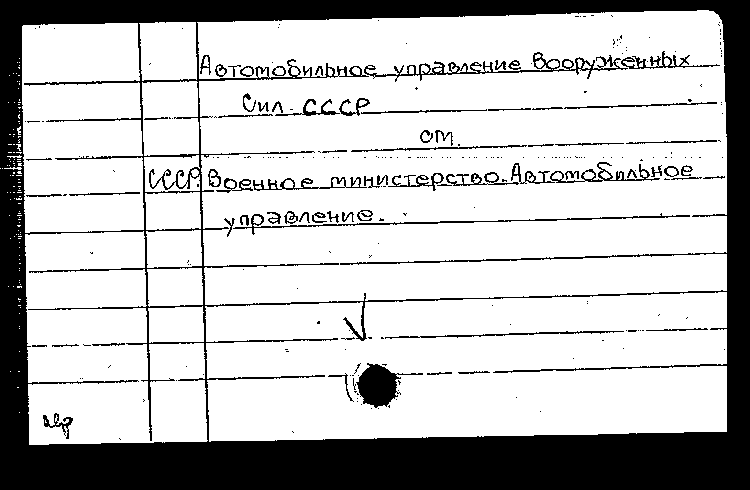 Автомобильное управление Вооруженных
Сил СССР
см.
СССР. Военное министерство. Автомобильное
управление.